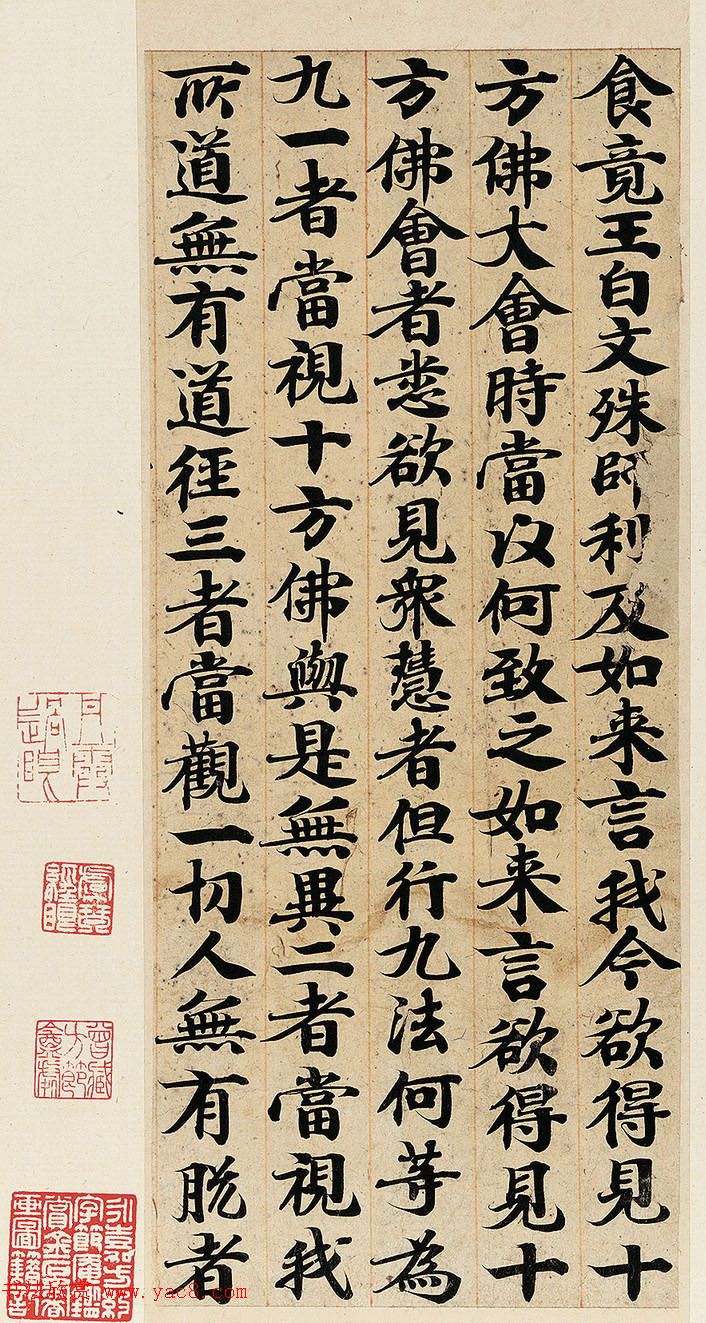 食竟王白文殊師利及如来言我今欲得見十
方佛大會時當以何致之如来言欲得見十
方佛會者悉欲見衆慧者但行九法何等為
九一者當視十方佛與是無異二者當視我
所道無有道徑三者當觀一切人無有脫者
曾藏方節盦處
www.yac8.com